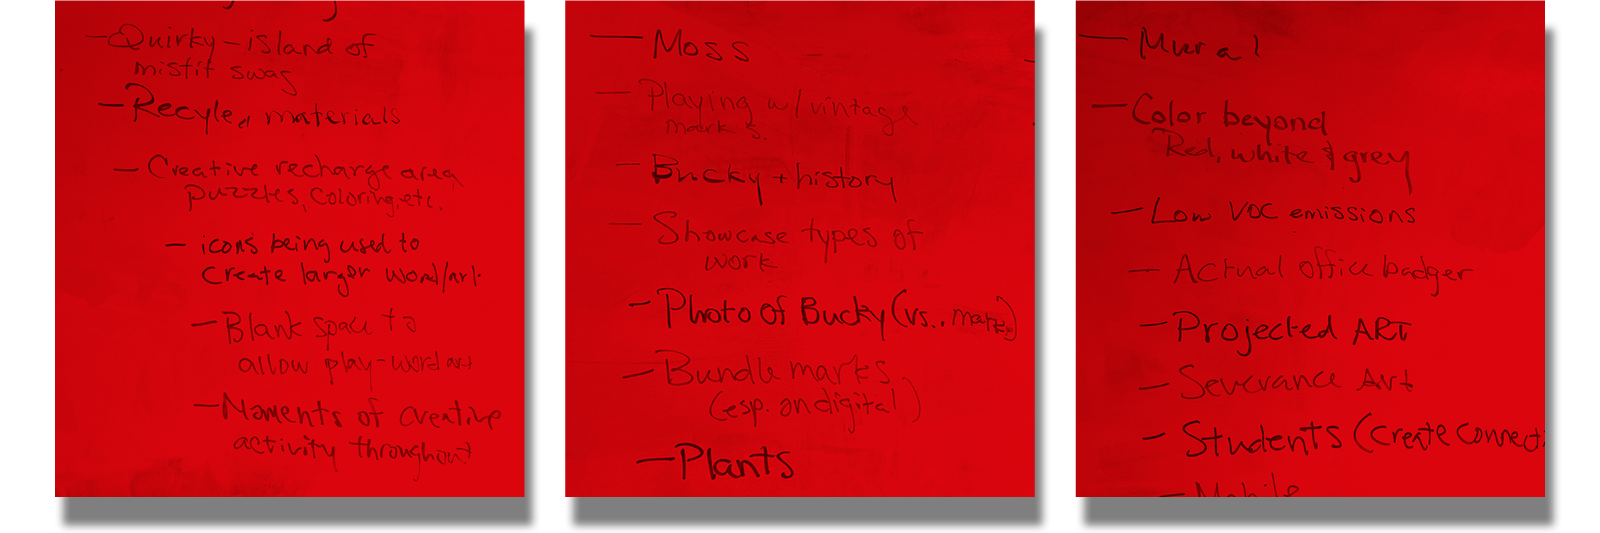 —Quirky – island of
misfit swag
—Recyled materials
— Creative recharge area
puzzles, Coloring, etc.
— icons being used to
create larger word/art
— Blank space to
allow play-word art
— Moments of creative
activity throughout
— Moss
— Playing w/ vintage
marks.
— Bucky + history
— Showcase types of
work
— Photo of Bucky (vs..
— Bundle marks
(esp. on digital)
— Plants
— Mural
— Color beyond
Red, white & grey
— Low VOC emissions
— Actual office badger
— Projected ART
— Severance Art
— Students (create connect
— Mobile